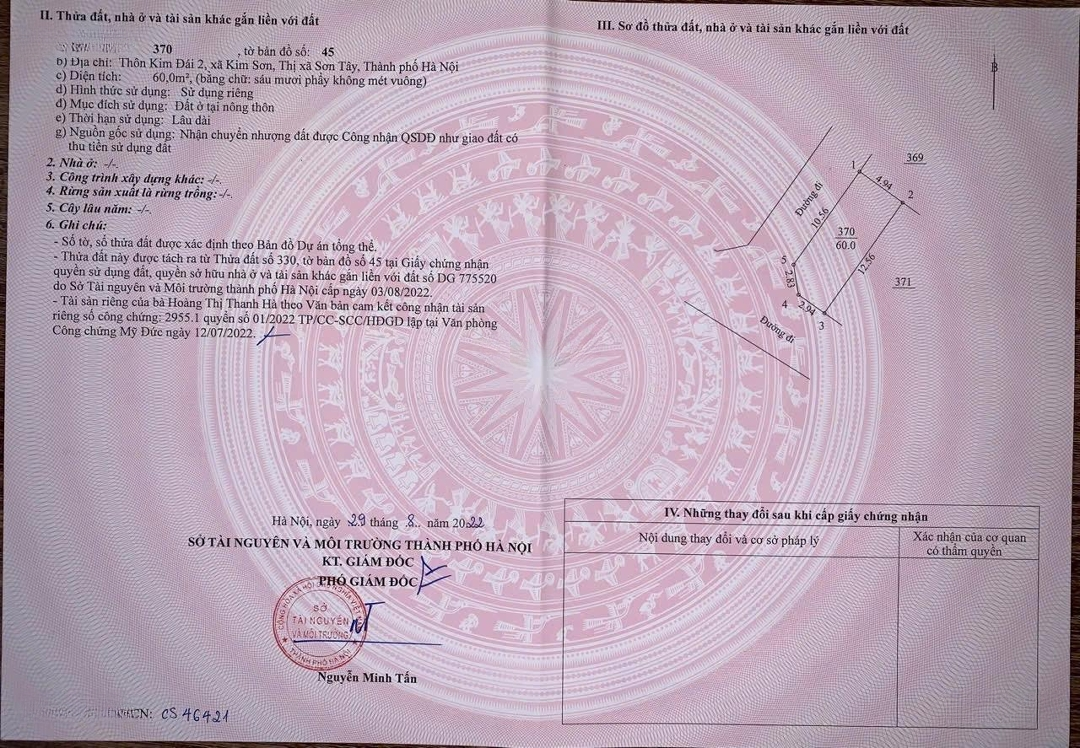 II. Thửa đất, nhà ở và tài sản khác gắn liền với đất
370 , tờ bản đồ số: 45
b) Địa chỉ: Thôn Kim Đái 2, xã Kim Sơn, Thị xã Sơn Tây, Thành phố Hà Nội
c) Diện tích: 60,0m², (bằng chữ: sáu mươi phẩy không mét vuông)
d) Hình thức sử dụng: Sử dụng riêng
đ) Mục đích sử dụng: Đất ở tại nông thôn
e) Thời hạn sử dụng: Lâu dài
g) Nguồn gốc sử dụng: Nhận chuyển nhượng đất được Công nhận QSDĐ như giao đất có
thu tiền sử dụng đất
2. Nhà ở: -/-.
3. Công trình xây dựng khác: -/-.
4. Rừng sản xuất là rừng trồng: -/-.
5. Cây lâu năm: -/-.
6. Ghi chú:
- Số tờ, số thửa đất được xác định theo Bản đồ Dự án tổng thể.
- Thửa đất này được tách ra từ Thửa đất số 330, tờ bản đồ số 45 tại Giấy chứng nhận
quyền sử dụng đất, quyền sở hữu nhà ở và tài sản khác gắn liền với đất số DG 775520
do Sở Tài nguyên và Môi trường thành phố Hà Nội cấp ngày 03/08/2022.
- Tài sản riêng của bà Hoàng Thị Thanh Hà theo Văn bản cam kết công nhận tài sản
riêng số công chứng: 2955.1 quyển số 01/2022 TP/CC-SCC/HĐGD lập tại Văn phòng
Công chứng Mỹ Đức ngày 12/07/2022.
Hà Nội, ngày 29 tháng 8.. năm 2022
SỞ TÀI NGUYÊN VÀ MÔI TRƯỜNG THÀNH PHỐ HÀ NỘI
KT. GIÁM ĐỐC
PHÓ GIÁM ĐỐC
CỘNG HÒA XÃ HỘI CHỦ NGHĨA VIỆT NAM
SỞ
TÀI NGUYÊN
VÀ MÔI TRƯỜNG
THÀNH PHỐ HÀ NỘI
Nguyễn Minh Tấn
CS 46421
III. Sơ đồ thửa đất, nhà ở và tài sản khác gắn liền với đất
B
369
1
4.94
2
Đường đi
10.56
370
60.0
12.56
371
5
2.83
4
2.94
3
Đường đi
IV. Những thay đổi sau khi cấp giấy chứng nhận
Nội dung thay đổi và cơ sở pháp lý
Xác nhận của cơ quan
có thẩm quyền